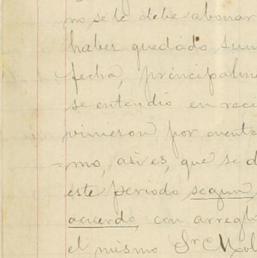 no se le debe abonar
haber quedado
fecha, principalm
se entendio en rec
vinieron por cuent
mo, asi es, que se d
este periodo segun
acuerdo con arregl
el mismo Sr